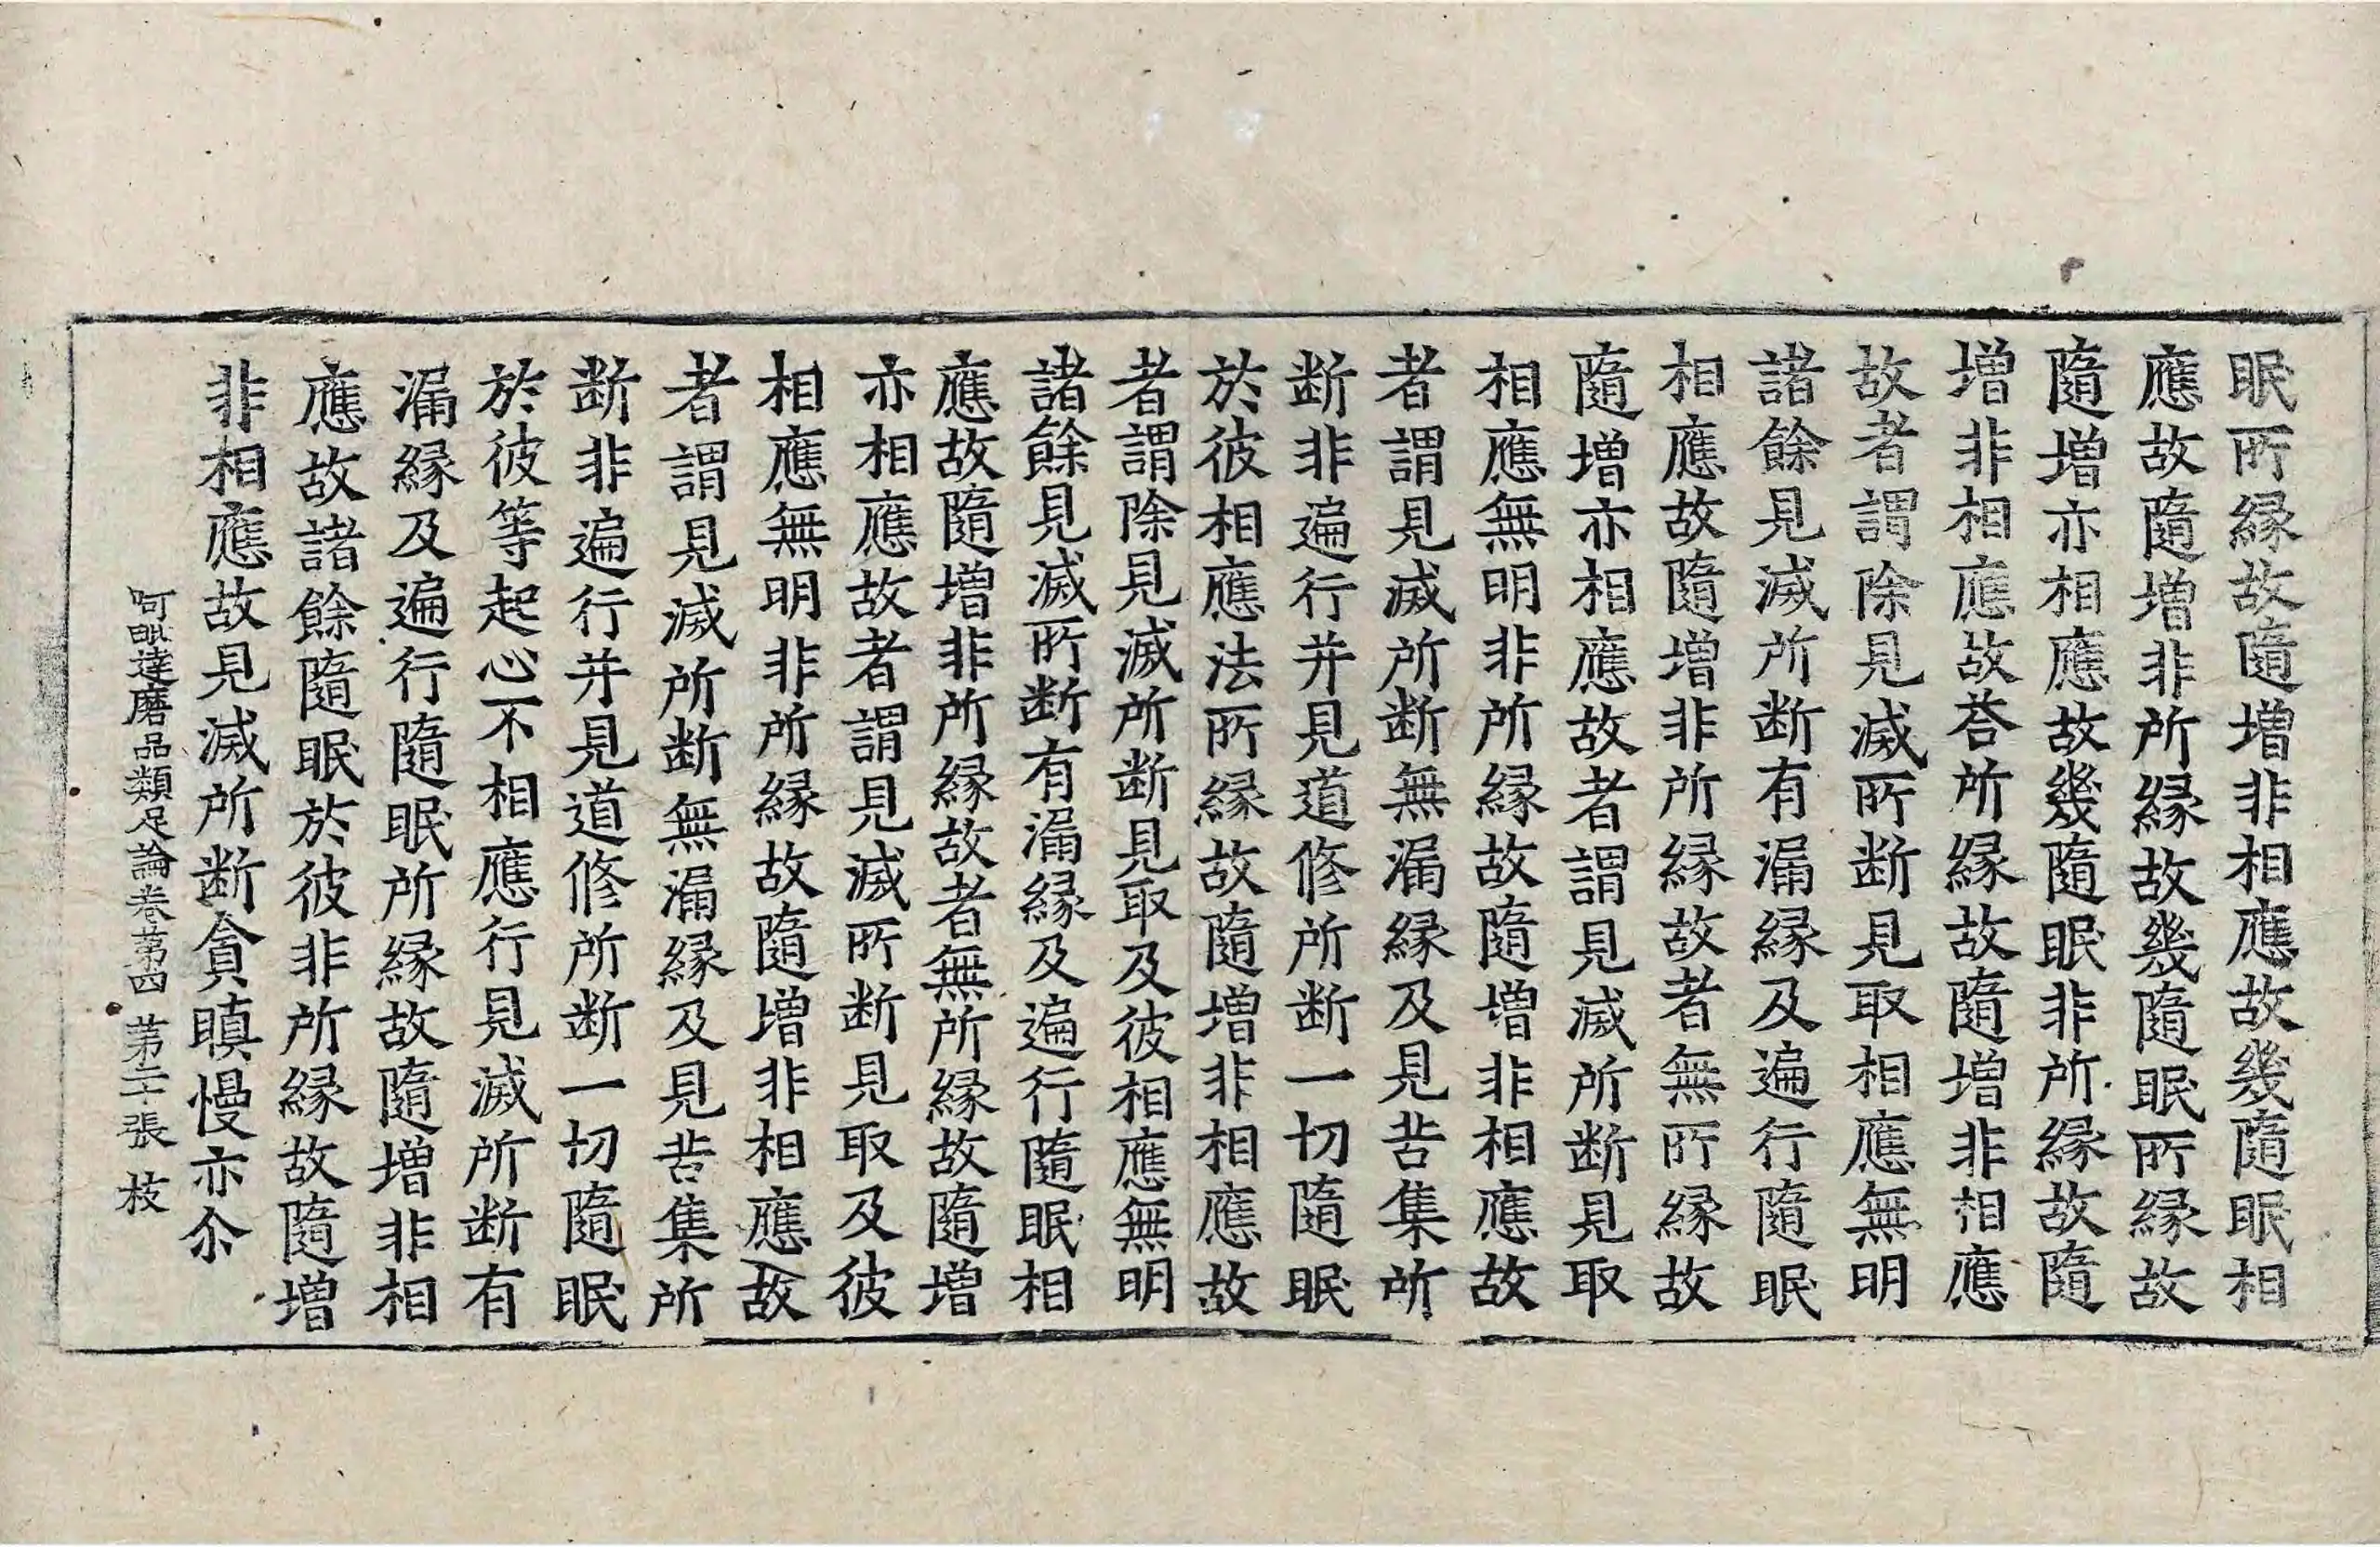 眠所縁故隨增非相應故幾隨眠相
應故隨增非所縁故幾隨眠所縁故
隨增亦相應故幾隨眠非所縁故隨
增非相應故荅所縁故隨增非相應
故者謂除見滅所断見取相應無明
諸餘見滅所断有漏縁及遍行隨眠
相應故隨增非所縁故者無所縁故
隨增亦相應故者謂見滅所断見取
相應無明非所縁故隨增非相應故
者謂見滅所断無漏縁及見苦集所
断非遍行并見道修所断一切隨眠
於彼相應法所縁故隨增非相應故
者謂除見滅所断見取及彼相應無明
諸餘見滅所断有漏縁及遍行隨眠相
應故隨增非所縁故者無所縁故隨增
亦相應故者謂見滅所断見取及彼
相應無明非所縁故隨增非相應故
者謂見滅所断無漏縁及見苦集所
断非遍行并見道修所断一切隨眠
於彼等起心不相應行見滅所断有
漏縁及遍行隨眠所縁故隨增非相
應故諸餘隨眠於彼非所縁故隨增
非相應故見滅所断貪瞋慢亦尒
阿毗達磨品類足論卷苐四　苐二十張　枝